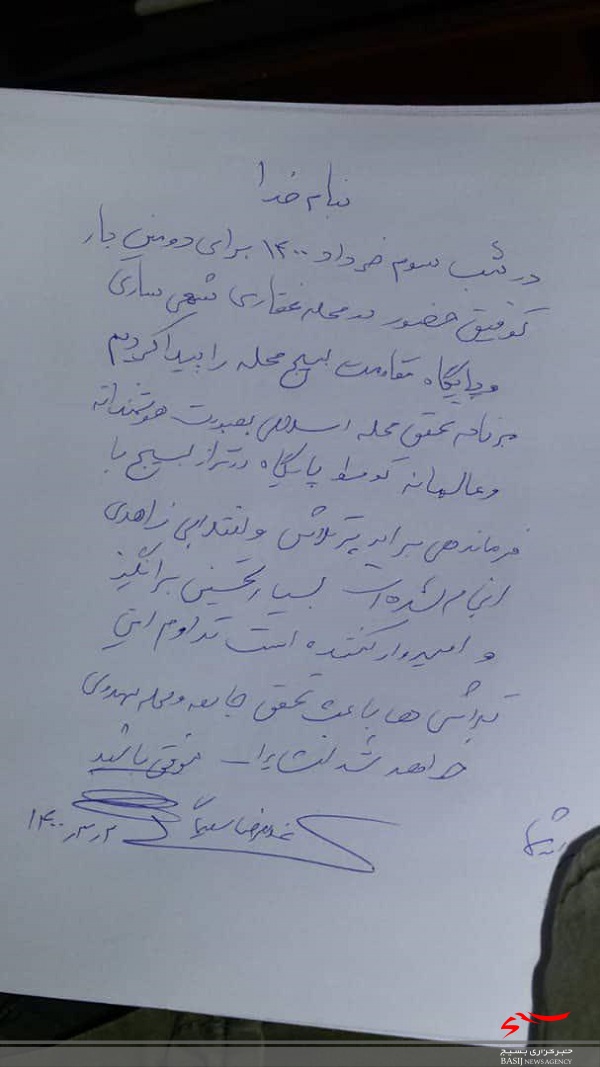 بنام خدا
در شب سوم خرداد ۱۴۰۰ برای دومین بار
توفیق حضور در محله غفاری شهر ساری
و پایگاه مقاومت بسیج محله را پیدا کردیم
برنامه تحقق محله اسلامی بصورت هوشمندانه
و عالمانه توسط پایگاه در تراز بسیج با
فرماندهی برادر پرتلاش و انقلابی زاهدی
انجام شده است بسیار تحسین برانگیز
و امیدوار کننده است تداوم این
تلاش ها باعث تحقق جامعه و محله مهدوی
خواهد شد انشاءا... موفق باشید
۱۴۰۰،۳،۳
خبرگزاری بسیج
BASIJ NEWS AGENCY